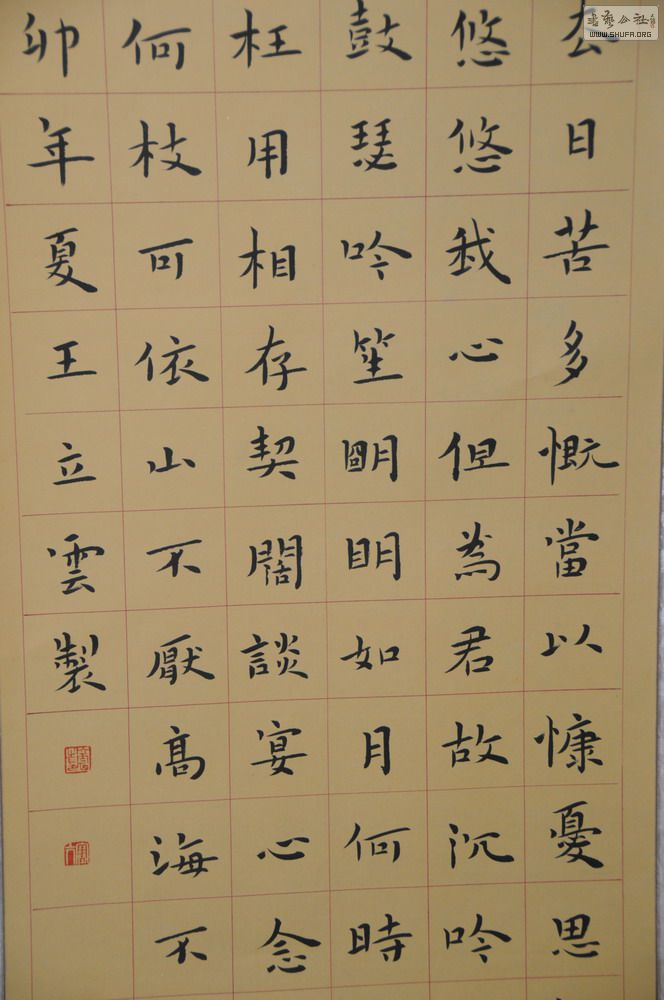 去日苦多慨當以慷憂思
悠悠我心但為君故沉吟
鼓瑟吟笙朙明如月何時
枉用相存契闊談宴心念
何枝可依山不厭高海不
卯年夏王立雲製
書藝公社
WWW.SHUFA.ORG